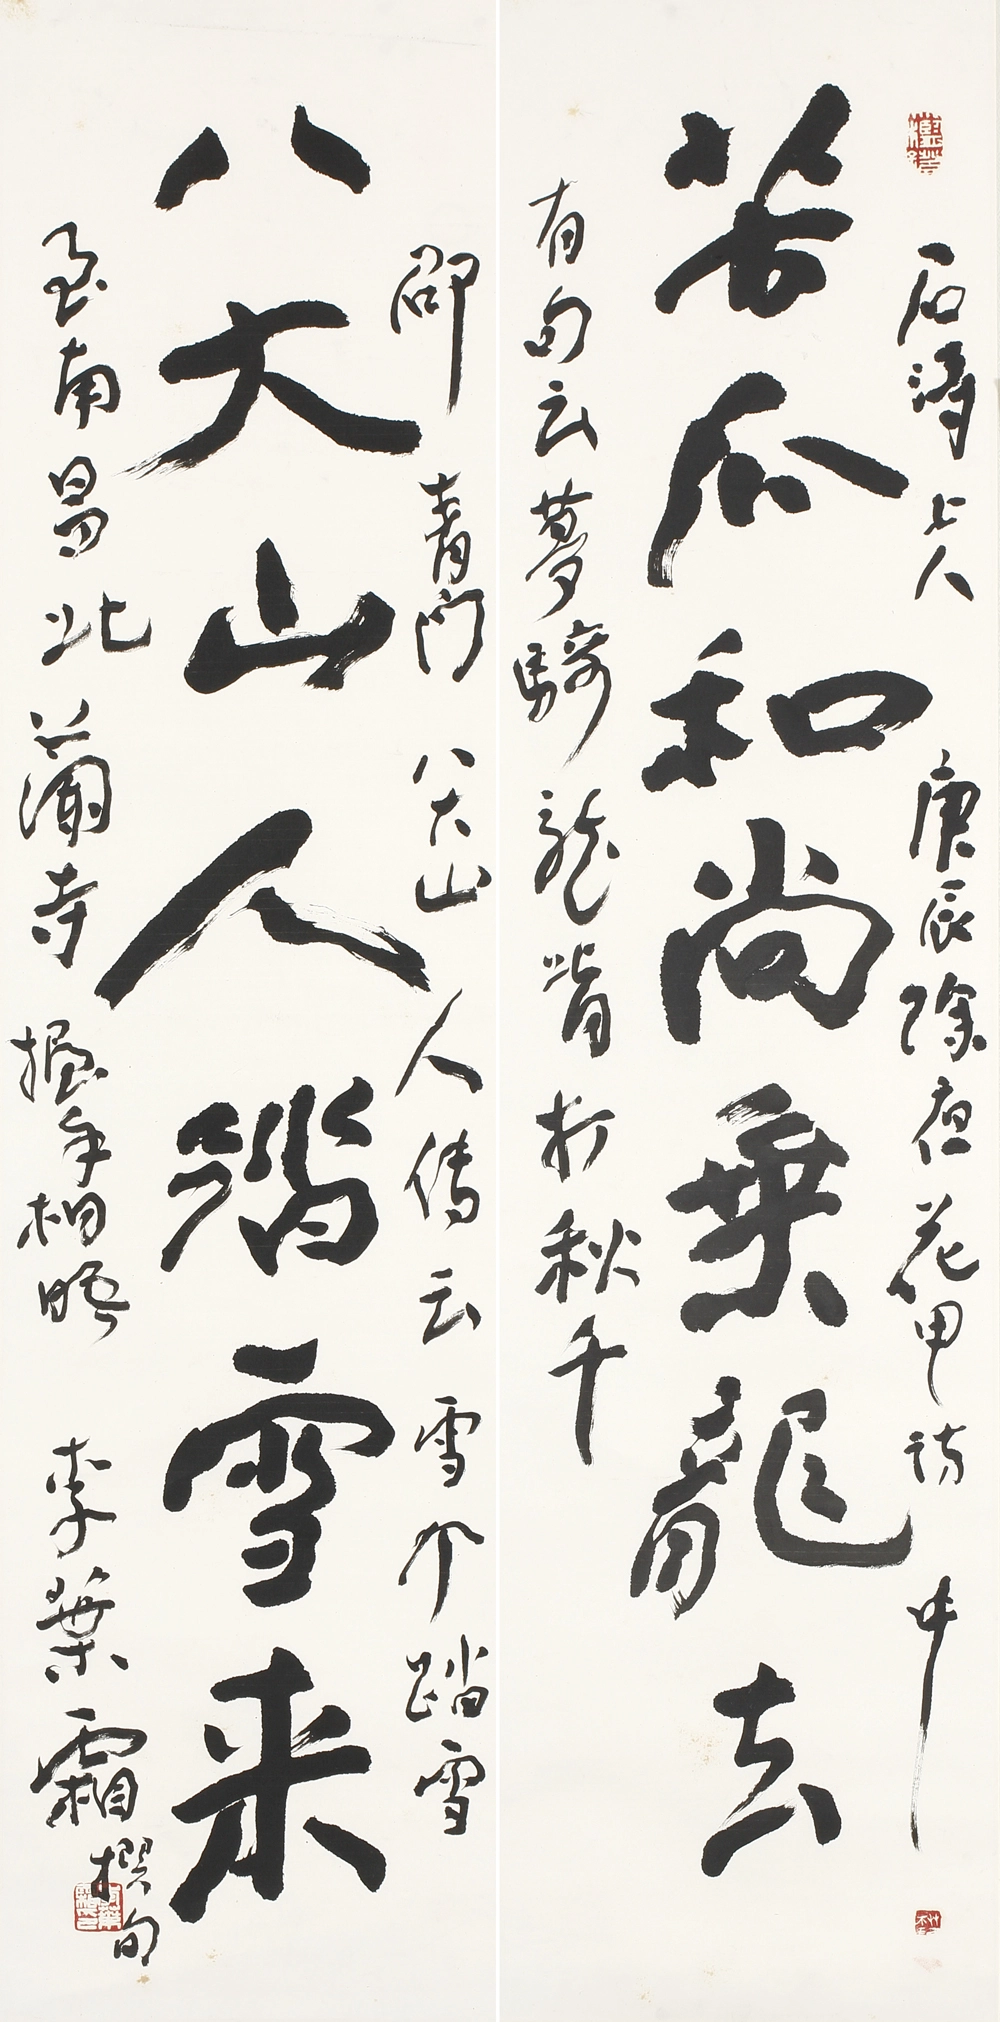 石濤上人庚辰除夜花甲詩中
苦瓜和尚乘龍去
有句云夢騎龍背打秋千
邵青門八大山人傳云雪个踏雪
八大山人踏雪来
至南昌北蘭寺握手相晤 李葉霜撰句